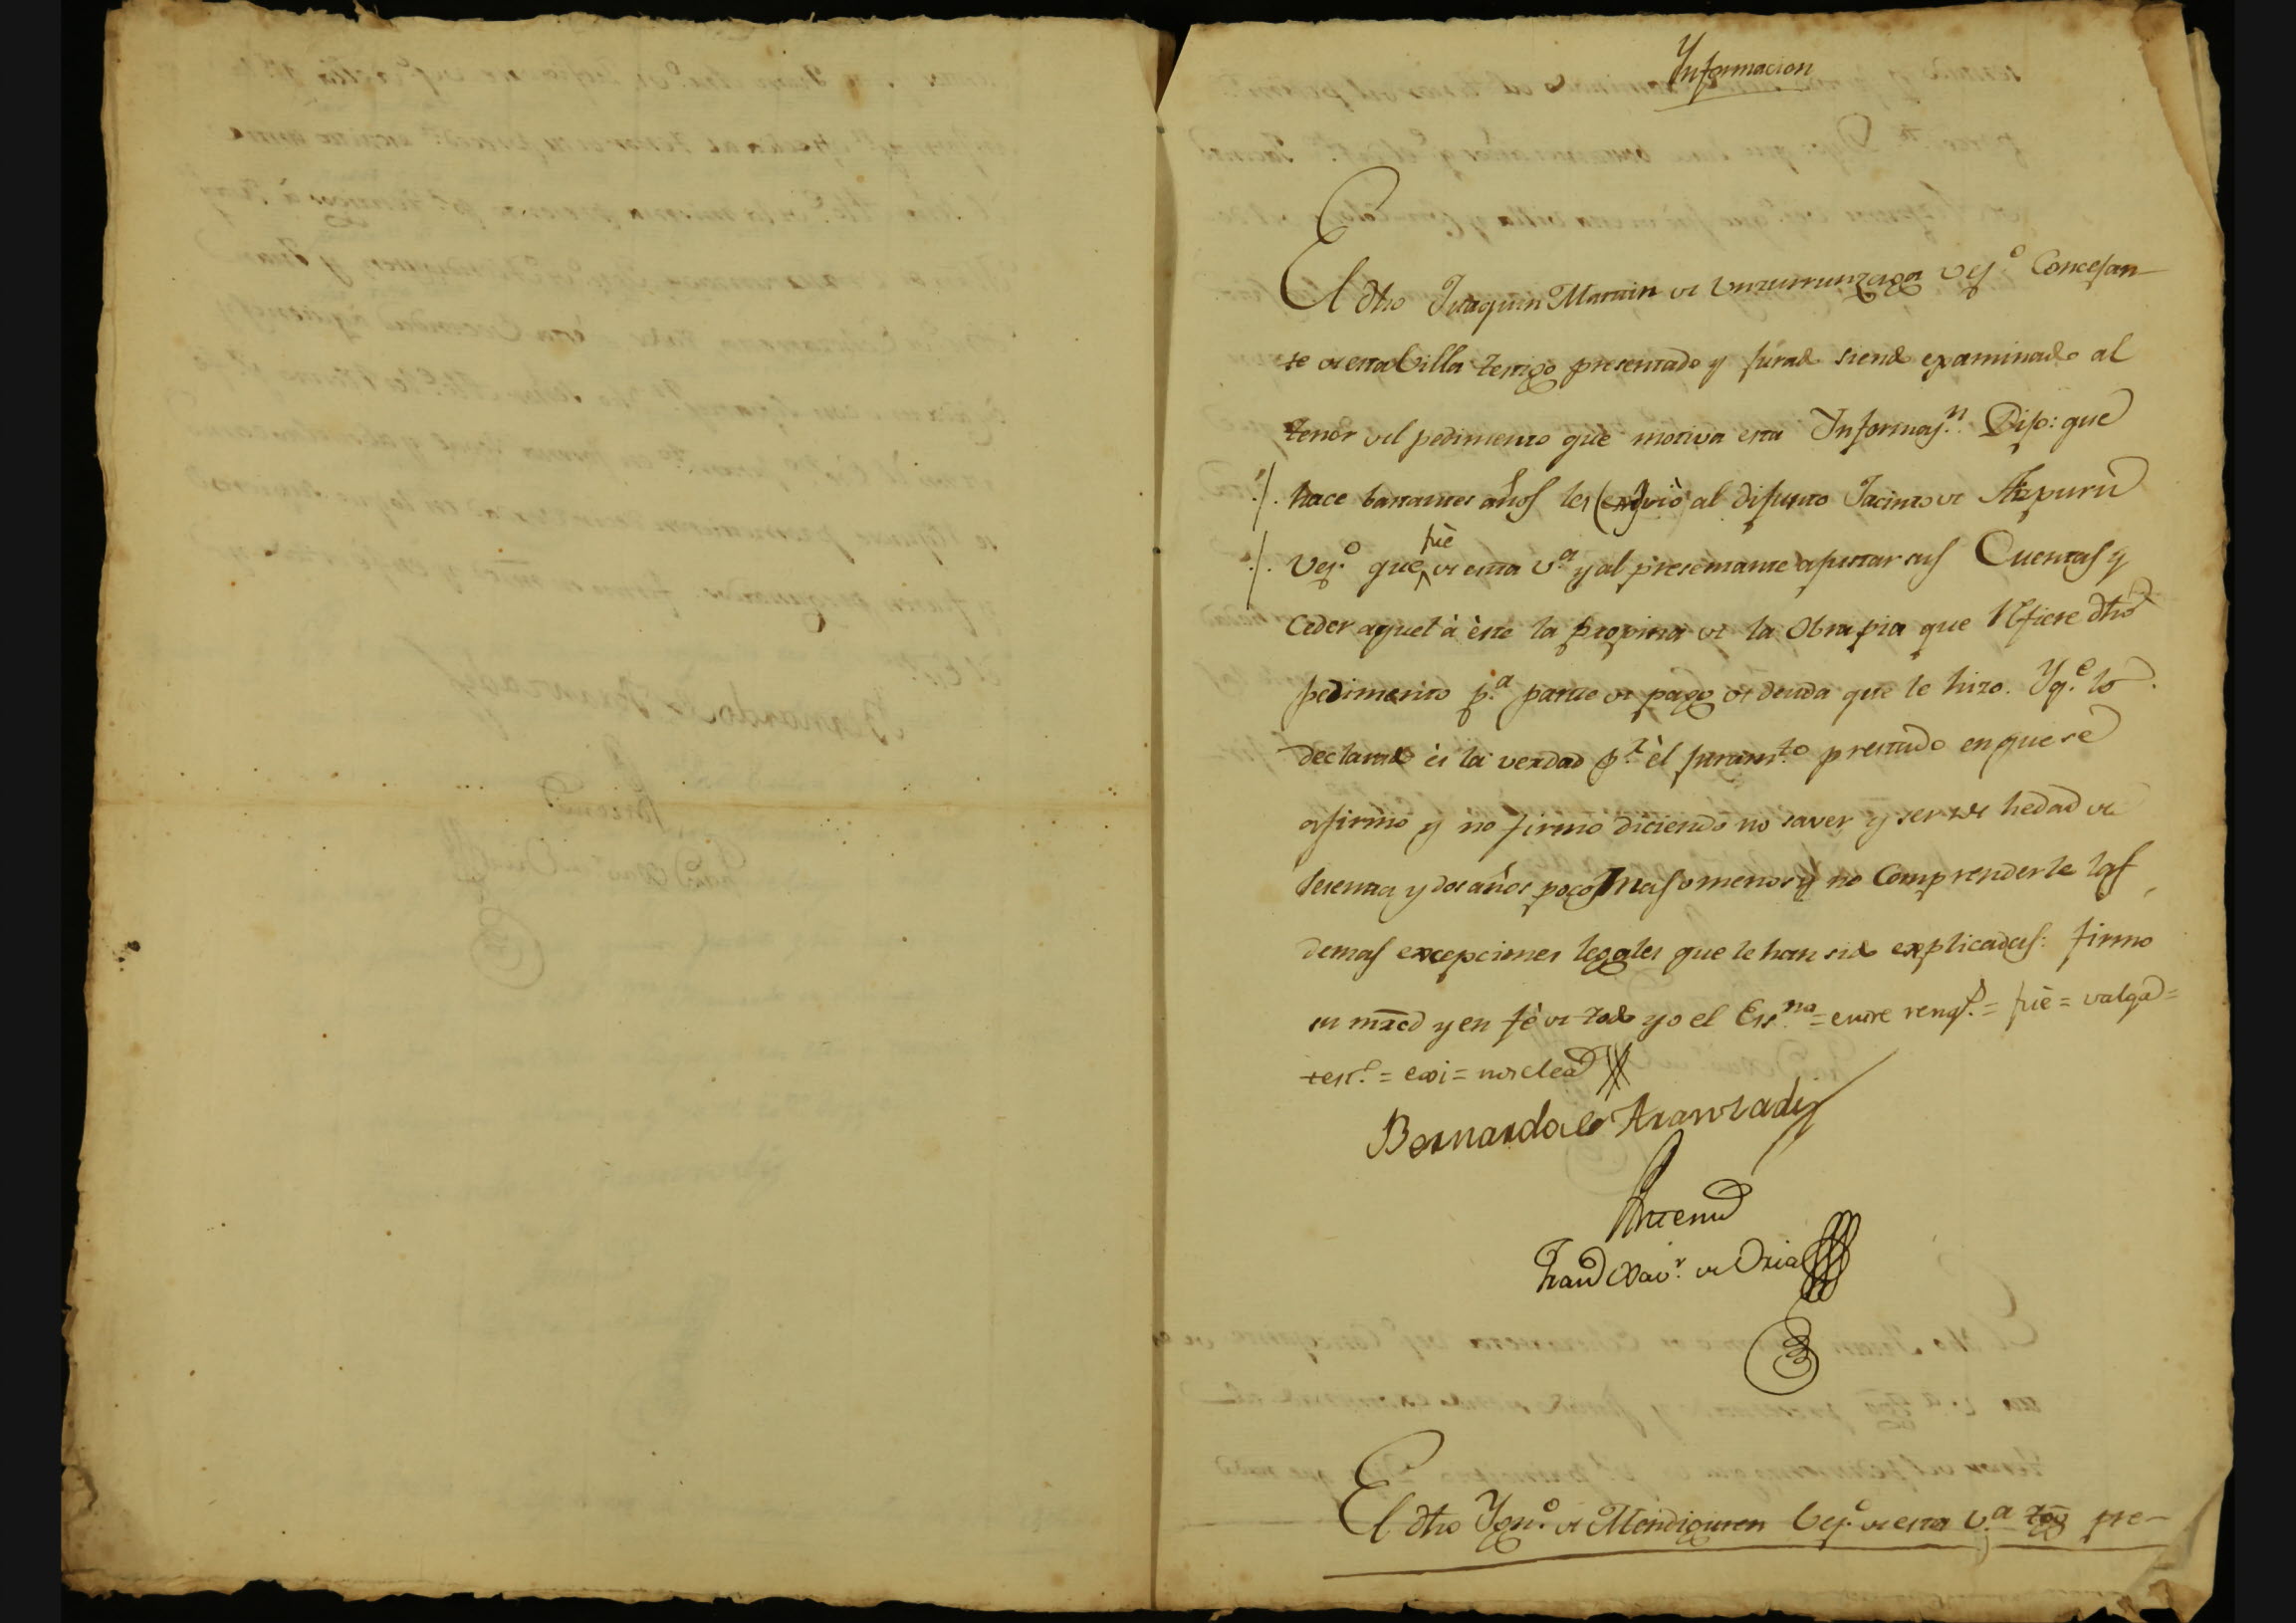 Ynformacion
El dho Juaquin Martin de Unzurrunzaga vej.º Concejan-
te de esta Villa testigo presentado y jurado siendo examinado al
tenor del pedimento que motiva esta Ynformaz.n Dijo: que
./. hace bastantes años les (exi) vió al difunto Jacinto de Azpuru
./. Vez.º que fué de esta v.a y al presentante ajustar sus Cuentas y
Ceder aquel à èste la propina de la Obra pia que Refiere dho
pedimento p.a parte de pago de deuda que le hizo. Yq.e lo
declarado ès la verdad p.r èl juram.to prestado en que se
afirmó y no firmó diciendo no saver y ser de hedad de
sesenta y dos años poco mas o menos y no Comprenderle las
demas excepciones legales que le han sido explicadas: firmó
su mrcd y en fè de todo yo el Ess.no = entre rengs. = fué = valga =
test.o = exi = no se lea
Bernardo de Aranzadi
Antemi
Fran.co Xav.r de Oria
El dho Ygn.º de Mendiguren Vez.º de esta v.a tgo pre-